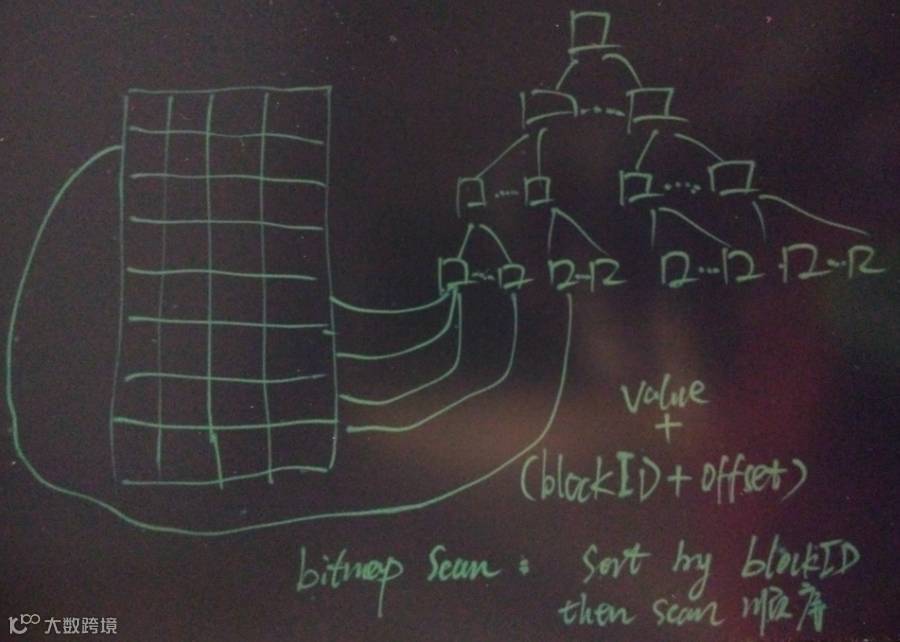 value
+
(blockID + offset)
bitmap scan : sort by blockID
then scan 顺序
大数跨境